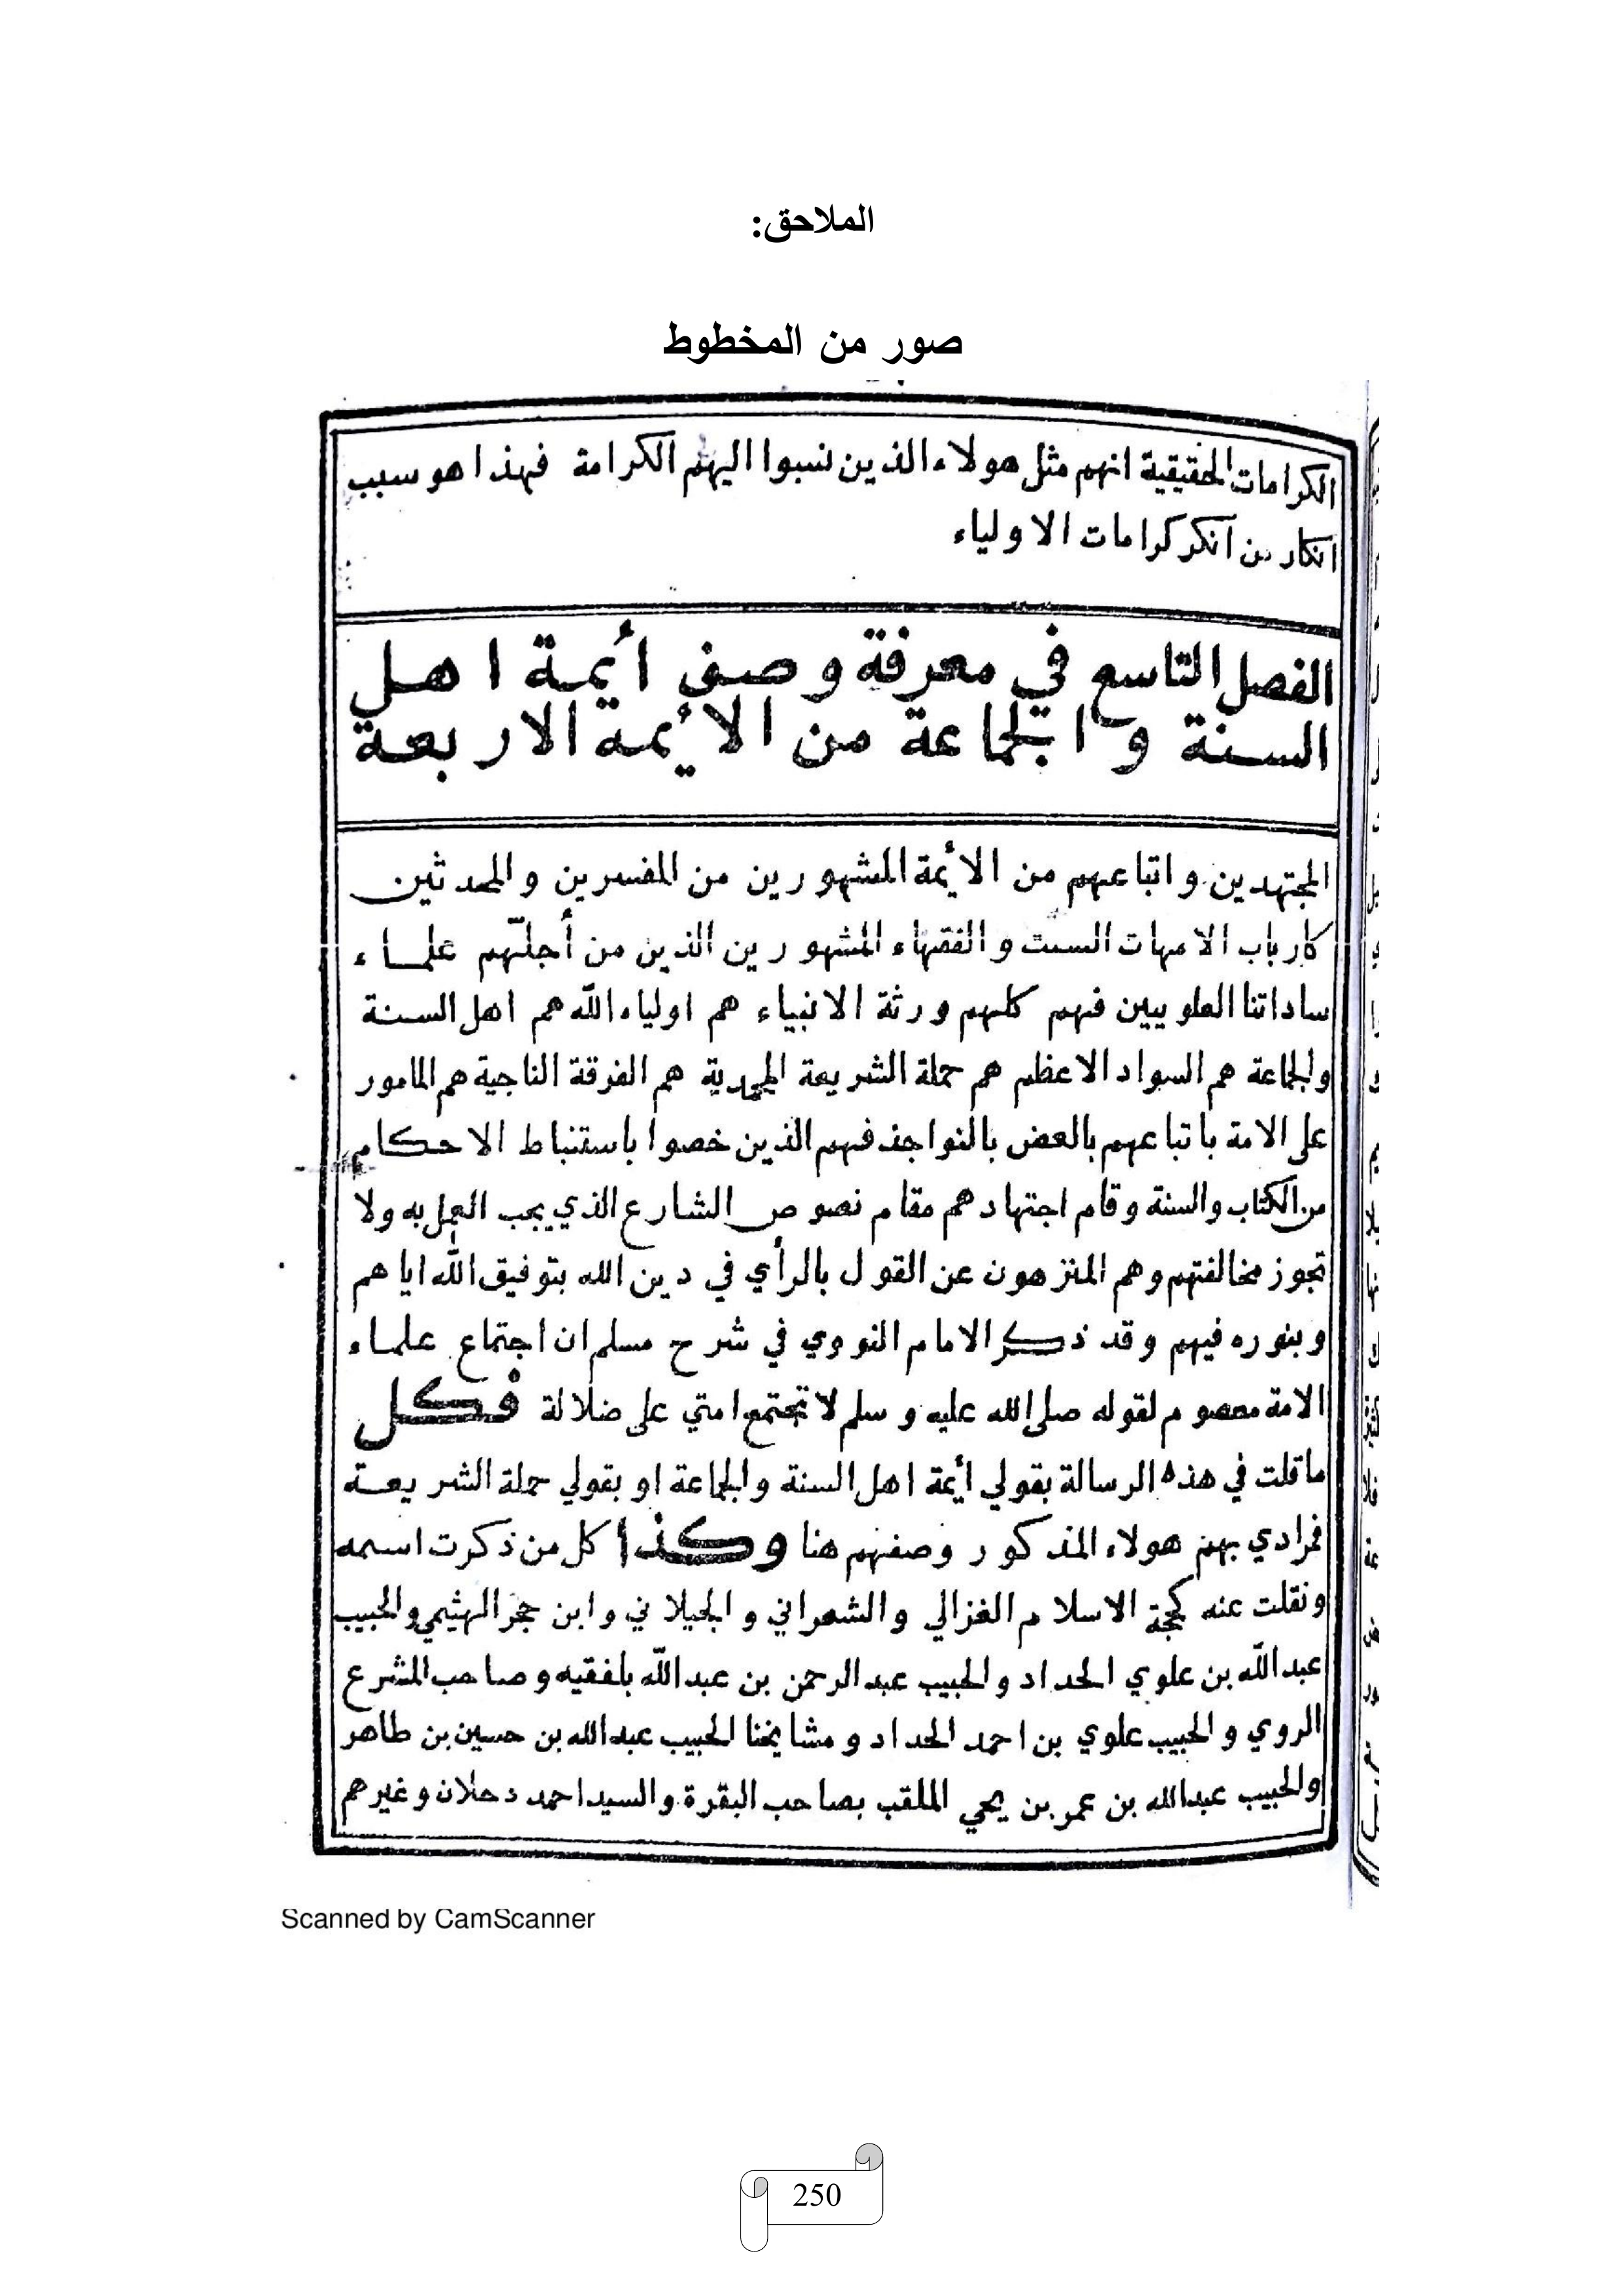 الملاحق:
صور من المخطوط
الكرامات الحقيقية انهم مثل هولاء الذين نسبوا اليهم الكرامة فهذا هو سبب
انكار من انكر كرامات الاولياء
الفصل التاسع في معرفة وصف أيمة اهل
السنة والجماعة من الايمة الاربعة
المجتهدين واتباعهم من الأيمة المشهورين من المفسرين والمحدثين
كارباب الامهات الست والفقهاء المشهورين الذين من أجلّهم علماء
ساداتنا العلويين فهم كلهم ورثة الانبياء هم اولياء الله هم اهل السنة
والجماعة هم السواد الاعظم هم حملة الشريعة المحمدية هم الفرقة الناجية هم المامور
على الامة باتباعهم بالعض بالنواجذ فهم الذين خصوا باستنباط الاحكام
من الكتاب والسنة وقام اجتهادهم مقام نصوص الشارع الذي يجب العمل به ولا
تجوز مخالفتهم وهم المنزهون عن القول بالرأي في دين الله بتوفيق الله اياهم
وبنوره فيهم وقد ذكر الامام النووي في شرح مسلم ان اجتماع علماء
الامة معصوم لقوله صلى الله عليه وسلم لا تجتمع امتي على ضلالة فكل
ما قلت في هذه الرسالة بقولي أيمة اهل السنة والجماعة او بقولي حملة الشريعة
فمرادي بهم هولاء المذكور وصفهم هنا وكذا كل من ذكرت اسمه
ونقلت عنه كحجة الاسلام الغزالي والشعراني والجيلاني وابن حجر الهيثمي والحبيب
عبدالله بن علوي الحداد والحبيب عبدالرحمن بن عبدالله بلفقيه وصاحب المشرع
الروي والحبيب علوي بن احمد الحداد ومشايخنا الحبيب عبدالله بن حسين بن طاهر
والحبيب عبدالله بن عمر بن يحي الملقب بصاحب البقرة والسيد احمد دحلان وغيرهم
Scanned by CamScanner
250